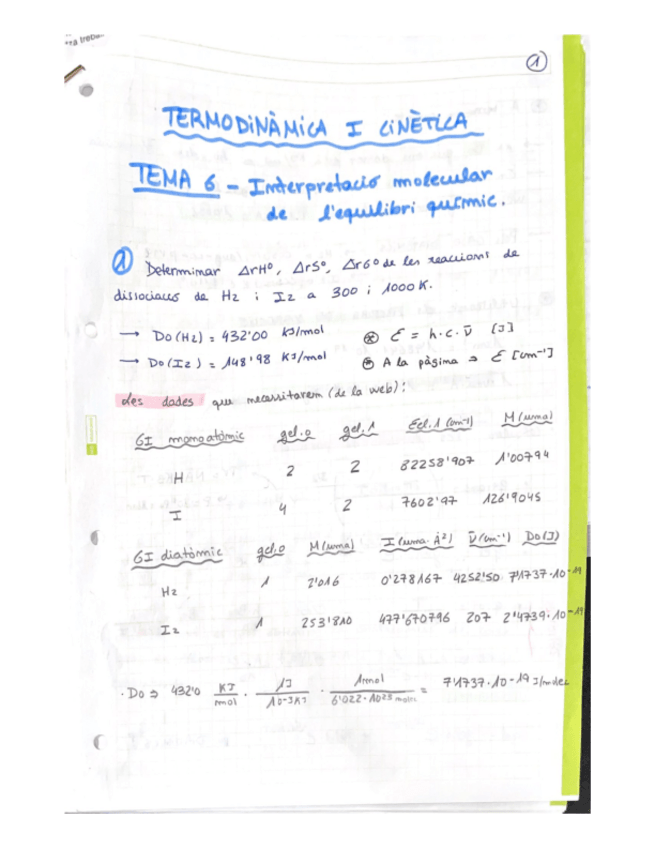 1
TERMODINÀMICA I CINÈTICA
TEMA 6 - Interpretació molecular
de l'equilibri químic.
1 Determinar ΔrHº, ΔrSº, ΔrGº de les reaccions de
dissociació de H2 i I2 a 300 i 1000K.
→ Do(H2) = 432'00 KJ/mol
⊛ ε = h·c·ν̄ [J]
→ Do(I2) = 148'98 KJ/mol
⊛ A la pàgina ⇒ ε [cm-1]
Les dades que necessitarem (de la web):
GI monoatòmic gel.0 gel.1 Eel.1 (cm-1) M(uma)
H 2 2 82258'907 1'00794
I 4 2 7602'97 126'9045
GI diatòmic gel.0 M(uma) I(uma·Å2) ν̄(cm-1) Do(J)
H2 1 2'016 0'278167 4252'50 7'1737·10-19
I2 1 253'810 477'670796 207 2'4739·10-19
· Do ⇒ 432'0 KJ/mol · 1J/10-3KJ · 1mol/6'022·1023 molec = 7'1737·10-19 J/molec